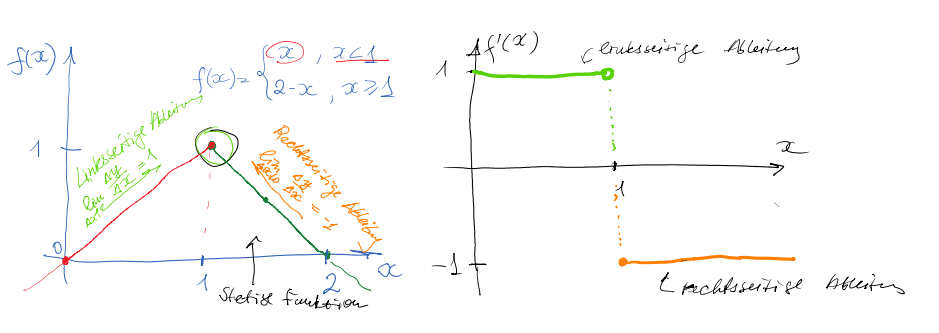 f(x)
f(x) = { x , x < 1
2-x , x ⩾ 1
1
Linksseitige Ableitung
lim Δy/Δx = 1
Δx→0
Rechtsseitige Ableitung
lim Δy/Δx = -1
Δx→0
0
1
2
x
Stetige Funktion
f'(x)
linksseitige Ableitung
1
x
1
-1
rechtsseitige Ableitung